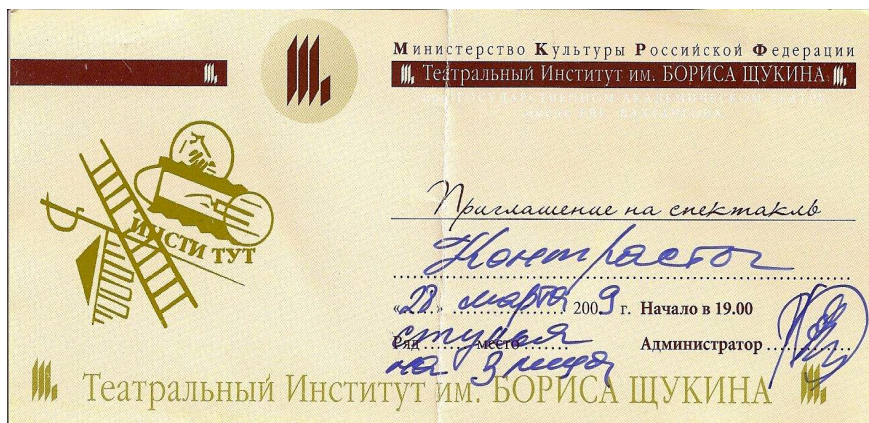 Министерство Культуры Российской Федерации
Театральный Институт им. БОРИСА ЩУКИНА
ИНСТИ ТУТ
Приглашение на спектакль
Контрасты
«28» марта 2009 г. Начало в 19.00
Ряд место Администратор
стулья
на 3 лица
Театральный Институт им. БОРИСА ЩУКИНА